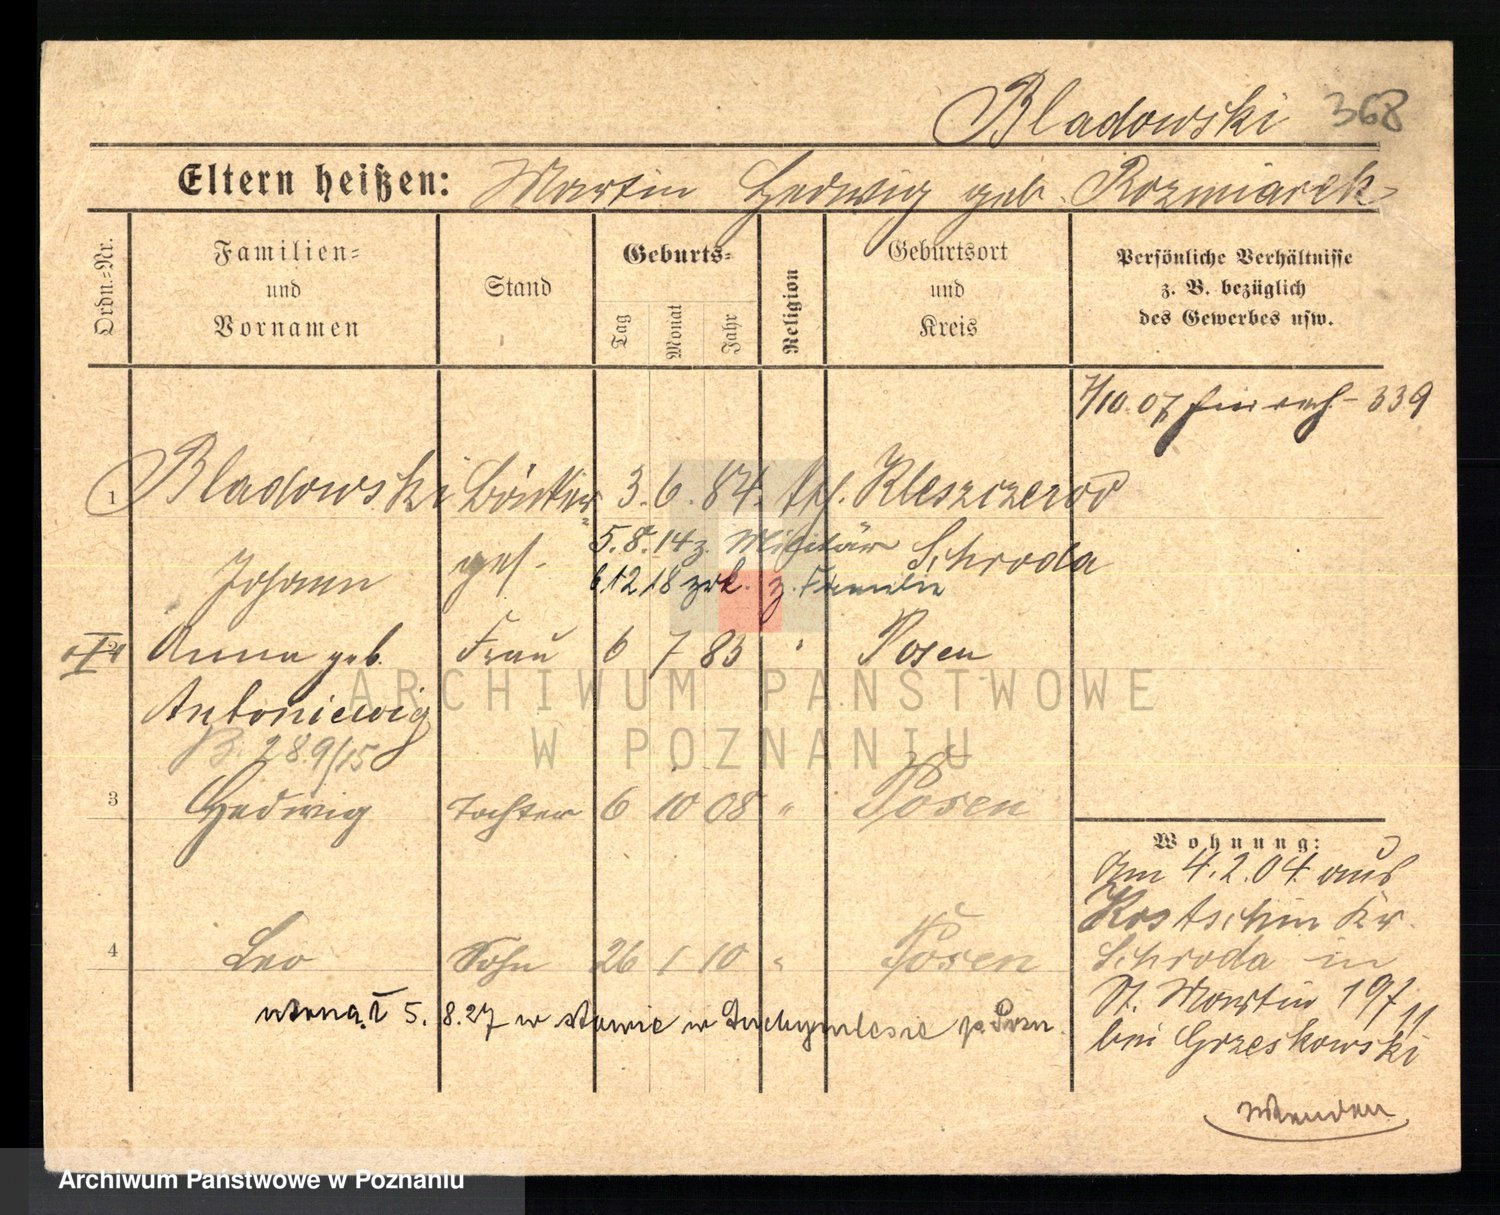 Bladowski 368
Eltern heißen: Martin Hedwig geb. Rozmiarek
Ordn.=Nr.
Familien=
und
Vornamen
Stand
Geburts=
Tag
Monat
Jahr
Religion
Geburtsort
und
Kreis
Persönliche Verhältnisse
z. B. bezüglich
des Gewerbes usw.
7/10.07 339
1 Bladowski Böttcher 3. 6. 84. kth. Kleszczewo
5.8.14 z. Militär Schroda
Johann ges.
6.12.18 zrk. z. Familie
Anna geb. Frau 6 7 85 " Posen
Antoniewig
B. 289/15
3 Hedwig Tochter 6 10 08 " Posen
4 Leo Sohn 26 1 10 " Posen
utonął 5.8.27 w stawie w p. Pozn.
Wohnung:
Am 4.2.04 aus
Kostschin Kr.
Schroda in
St. Martin 197 11
bei Grzeskowski
Wenden
ARCHIWUM PAŃSTWOWE
W POZNANIU
Archiwum Państwowe w Poznaniu